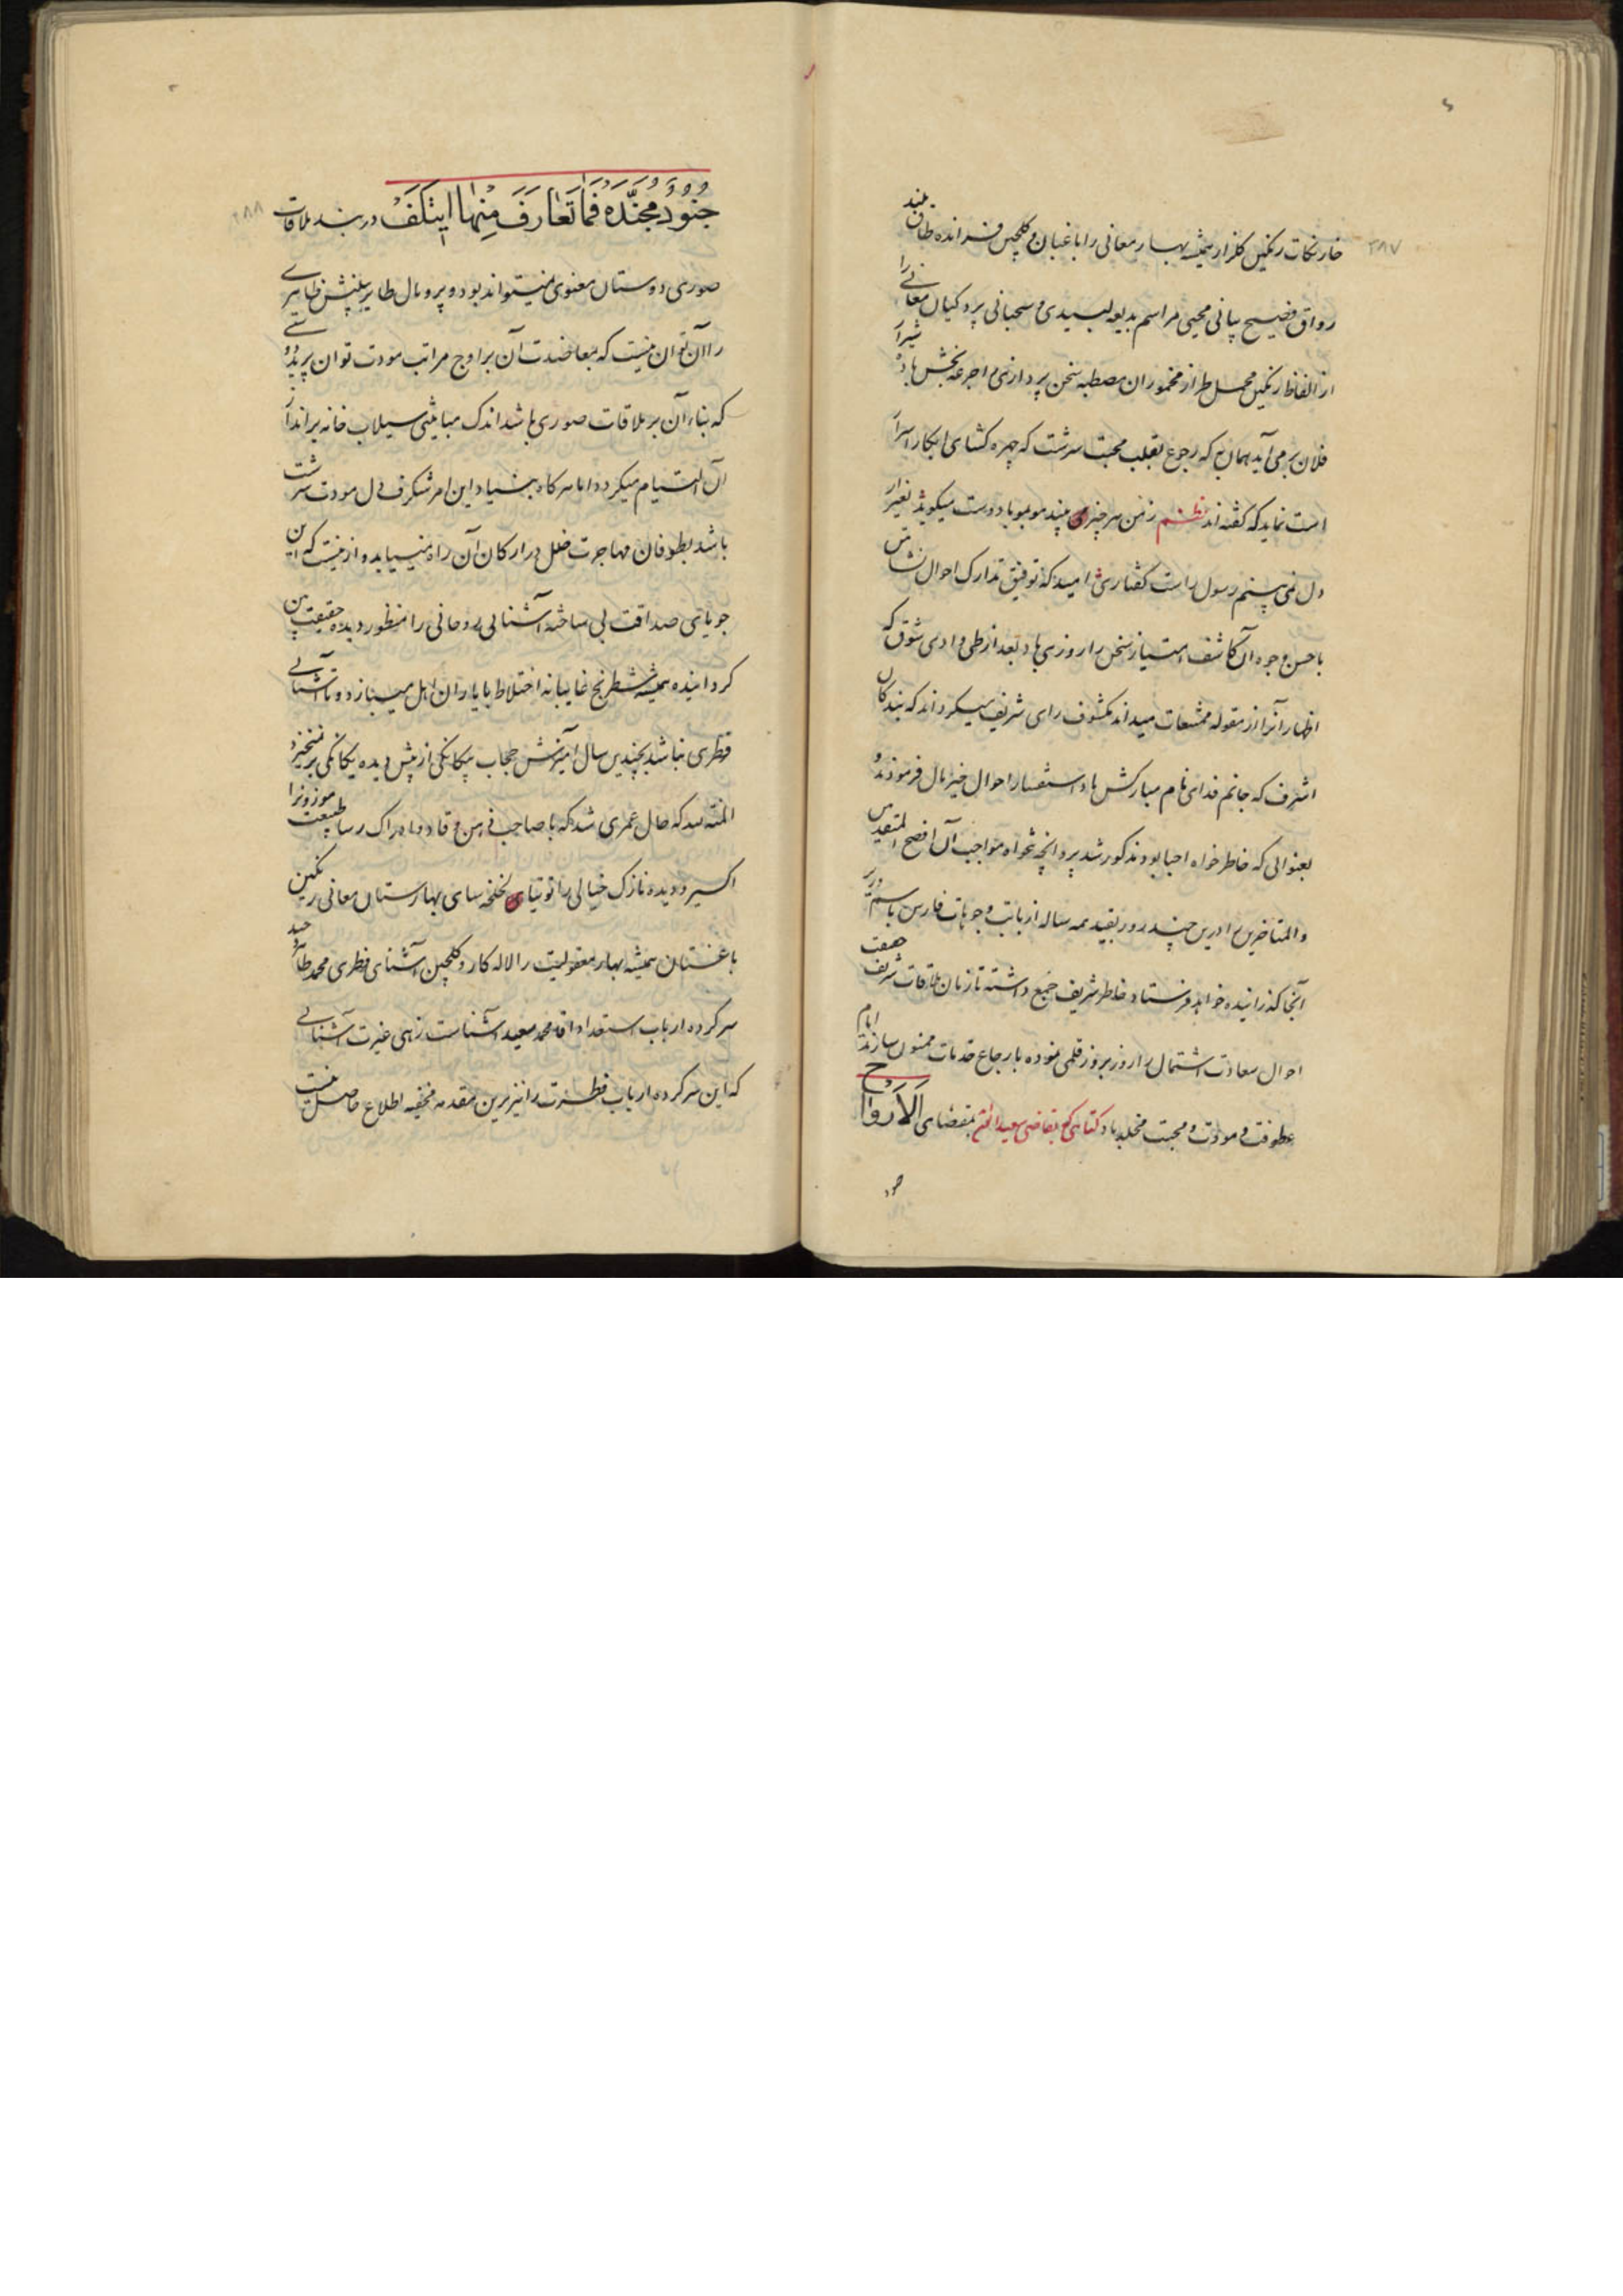 ۲۸۷
خار نکات رنگین گلزار همیشه بهار معانی را باغبان و گلچین فرازنده طاق بلند
رواق فصیح بیانی محیی مراسم بدیعه لبیدی و سحبانی پردگیان معانی را
از الفاظ رنگین محمل طراز مخموران مصطبه سخن پردازی را جرعه بخش باده شیراز
فلان بر می آید همان به که رجوع بقلب محبت سرشت که چهره گشای ابکار اسرار
است نماید که گفته اند نظم ز من هر چیزی بیند موبمو با دوست میگوید بغیر از
دل نمی بینم رسول راست گفتاری امید که توفیق تدارک احوال نشاتین
باحسن وجوه آن کاشف امتیاز سخن را روزی باد بعد از طی وادی شوق که
اظهار آنرا از مقوله ممتنعات میداند مکشوف رای شریف میگرداند که بندگان
اشرف که جانم فدای نام مبارکش باد استفسار احوال خیر مآل فرمودند و
بعنوانی که خاطر خواه احبا بود مذکور شد پروانچه تنخواه مواجب آن افصح المتقدمین
والمتاخرین را درین چند روز بقید همه ساله از بابت وجوهات فارس باسم وزیر
آنجا گذرانیده خواهد فرستاد خاطر شریف جمع داشته تا زمان ملاقات شریف حقیقت
احوال سعادت اشتمال را روز بروز قلمی نموده بارجاع خدمات ممنون سازند ایام
عطوفت و مودت و محبت مخلد باد کتابتی که بقاضی سعید ا بمقتضای اَلاَرْواح
جنود
۲۸۸
جُنودٌ مُجَنَّدَه فَمَا تَعَارَفَ مِنها ایتَلَفَ در بند ملاقات
صوری دوستان معنوی نمیتواند بود و پر و بال طایر بینش ظاهری
را آن توان نیست که بمعاضدت آن بر اوج مراتب مودت توان پرید دوستی
که بناء آن بر ملاقات صوری باشد اندک مباینتی سیلاب خانه براندازد
آن التیام میگردد اما هر کاه بنیاد این امر شگرف دل مودت سرشت
باشد بطوفان مهاجرت خلل در ارکان آن راه نمییابد و ازینست که این
جویای صداقت بی شائبه آشنائی روحانی را منظور دیده حقیقت بین
گردانیده همیشه شطرنج غایبانه اختلاط با یاران اهل میبازد و تا آشنائی
فطری نباشد بچندین سال آمیزش حجاب بیگانگی از پیش دیده یگانگی بر نمیخیزد
المنه لله که حال عمری شد که با صاحب ذهن وقاد و ادراک رسا طبیعت موزونرا
اکسیر و دیده نازک خیالی را توتیای لخلخه سای بهارستان معانی رنگین
باغستان همیشه بهار معقولیت را لاله کار و گلچین آشنای فطری محمد طاهر وحید
سر کرده ارباب استعداد اقا محمد سعید آشناست زهی غیرت آشنائی
که این سر کرده ارباب فطرت را نیز برین مقدمه مخفیه اطلاع حاصل نیست